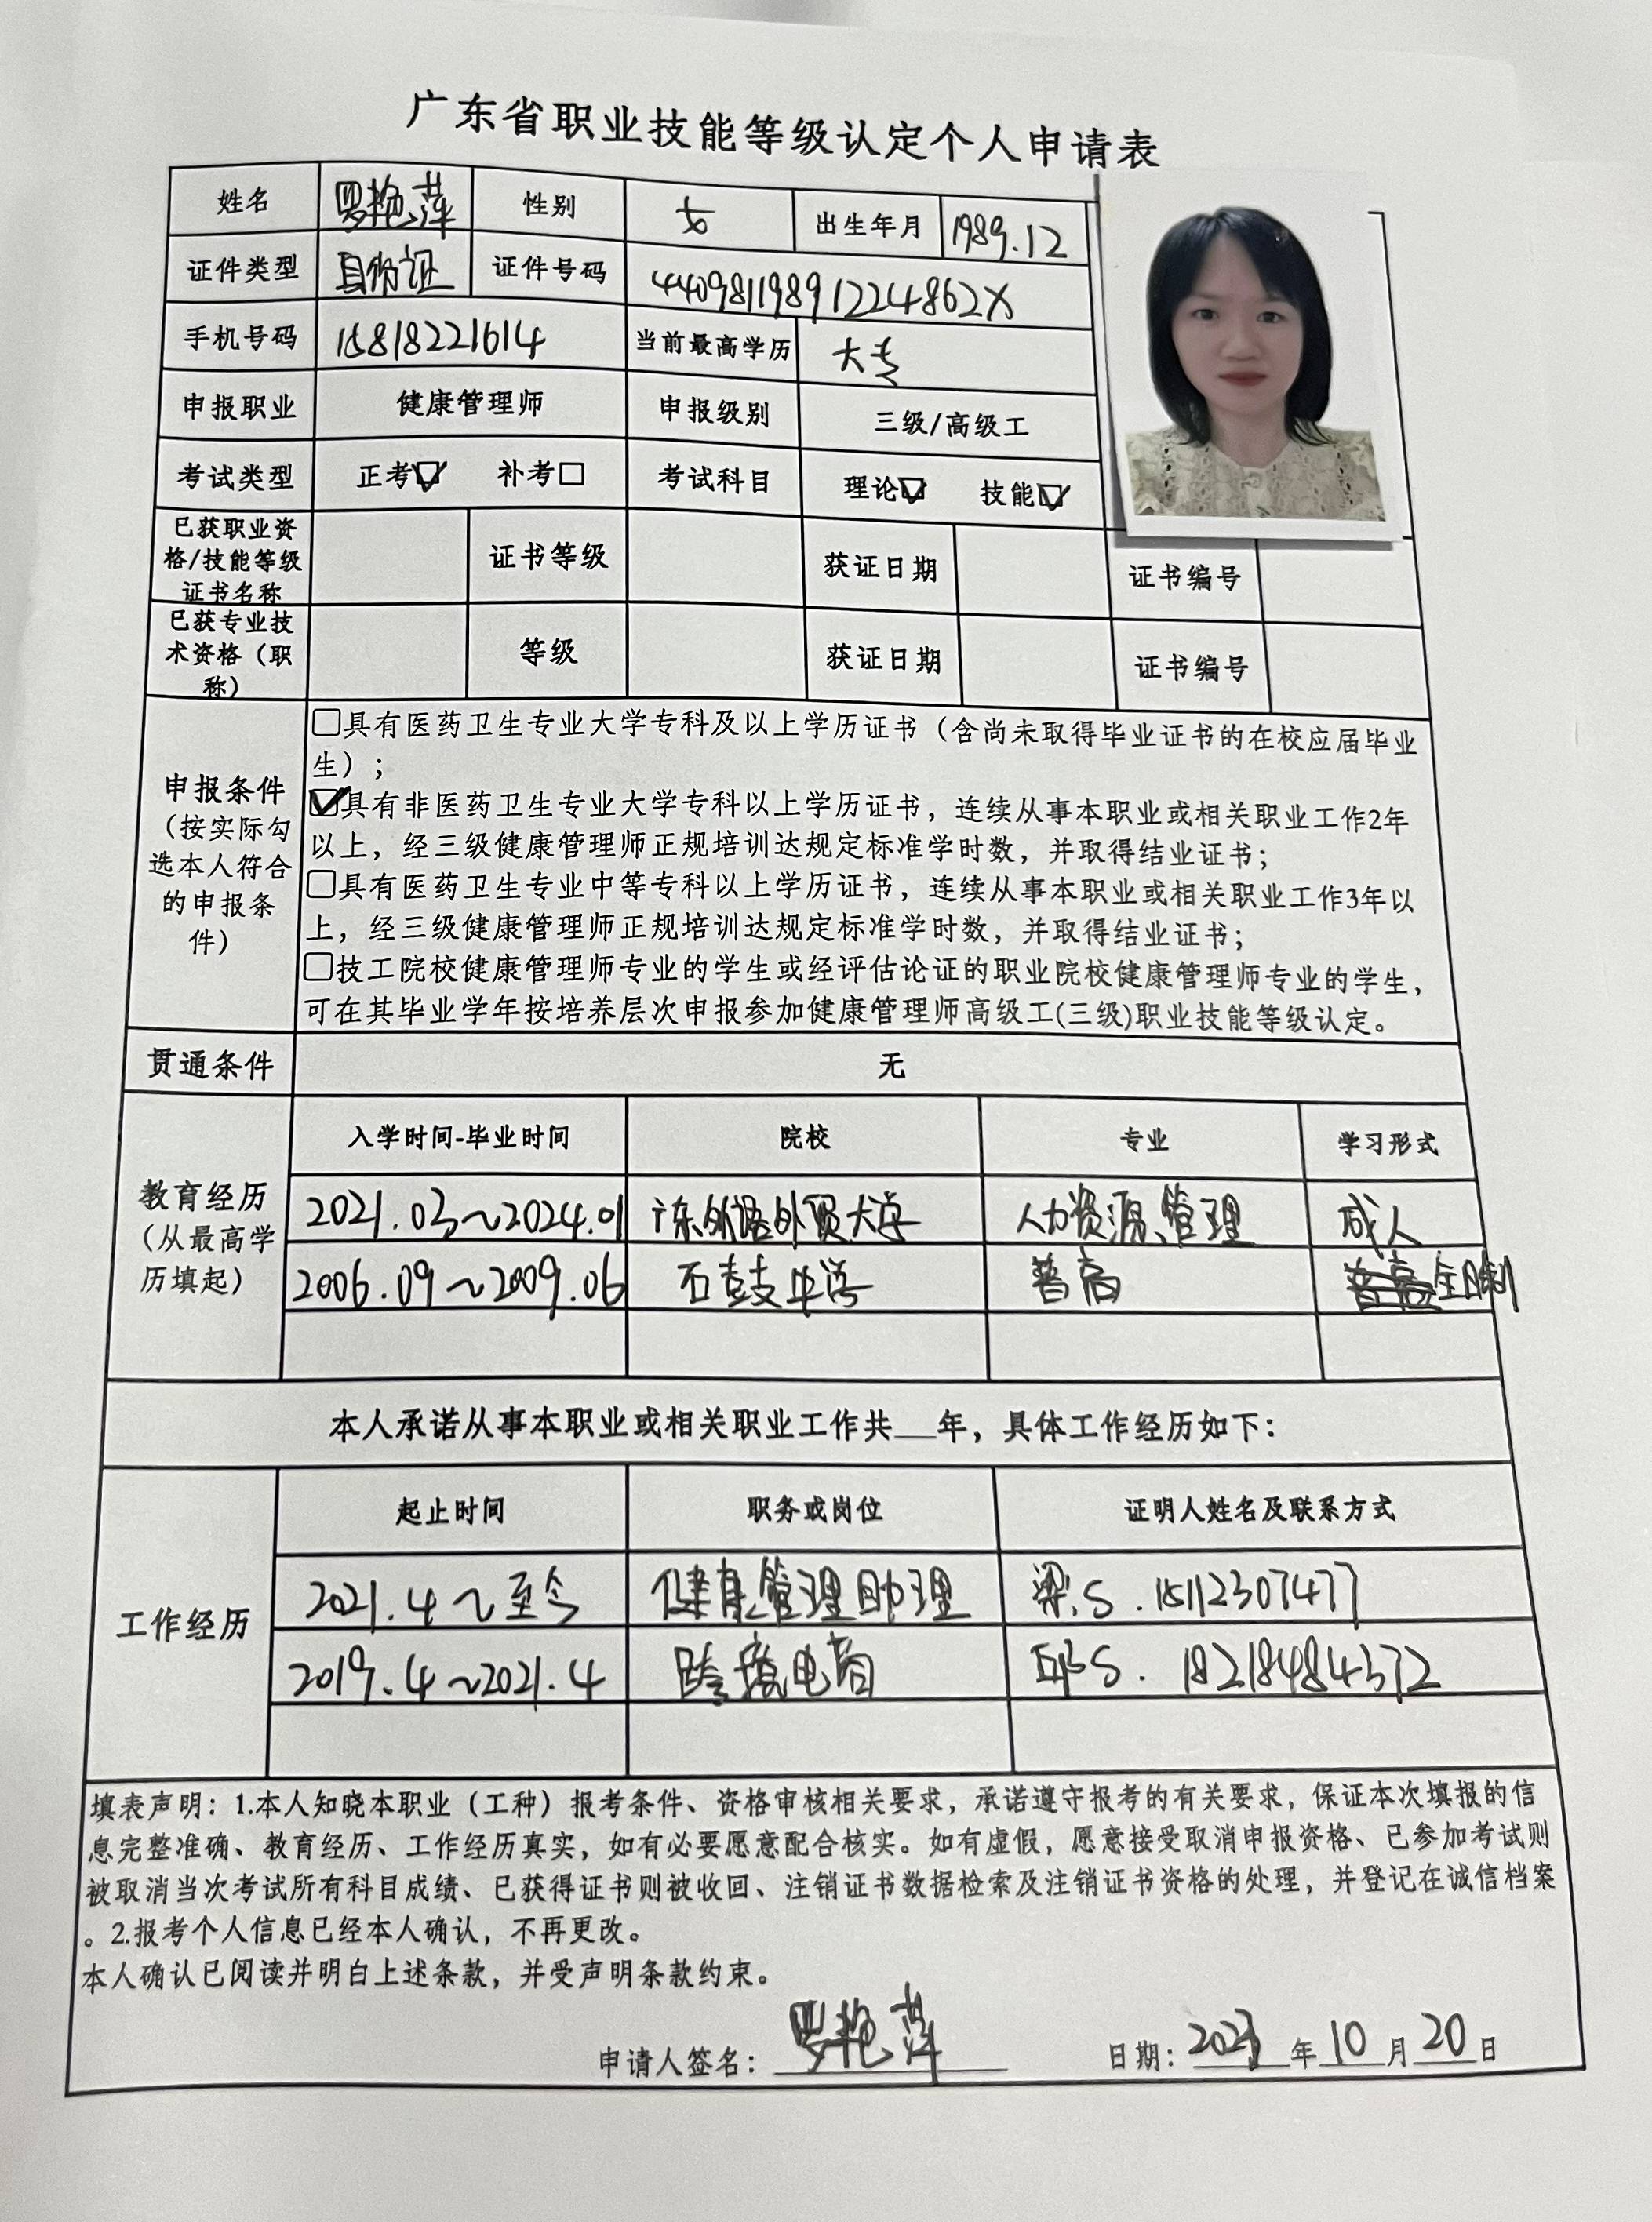 广东省职业技能等级认定个人申请表
姓名 罗艳萍 性别 女 出生年月 1989.12
证件类型 身份证 证件号码 44098119891224862X
手机号码 15818221614 当前最高学历 大专
申报职业 健康管理师 申报级别 三级/高级工
考试类型 正考☑ 补考□ 考试科目 理论☑ 技能☑
已获职业资
格/技能等级 证书等级 获证日期 证书编号
证书名称
已获专业技
术资格（职 等级 获证日期 证书编号
称）
□具有医药卫生专业大学专科及以上学历证书（含尚未取得毕业证书的在校应届毕业
生）；
申报条件
（按实际勾
选本人符合
的申报条
件）
☑具有非医药卫生专业大学专科以上学历证书，连续从事本职业或相关职业工作2年
以上，经三级健康管理师正规培训达规定标准学时数，并取得结业证书；
□具有医药卫生专业中等专科以上学历证书，连续从事本职业或相关职业工作3年以
上，经三级健康管理师正规培训达规定标准学时数，并取得结业证书；
□技工院校健康管理师专业的学生或经评估论证的职业院校健康管理师专业的学生，
可在其毕业学年按培养层次申报参加健康管理师高级工(三级)职业技能等级认定。
贯通条件 无
教育经历
（从最高学
历填起）
入学时间-毕业时间 院校 专业 学习形式
2021.03~2024.01 广东外语外贸大学 人力资源管理 成人
2006.09~2009.06 石鼓中学 普高 全日制
本人承诺从事本职业或相关职业工作共__年，具体工作经历如下：
工作经历
起止时间 职务或岗位 证明人姓名及联系方式
2021.4~至今 健康管理助理 梁S.15112307477
2019.4~2021.4 跨境电商 邱S.18218484372
填表声明：1.本人知晓本职业（工种）报考条件、资格审核相关要求，承诺遵守报考的有关要求，保证本次填报的信
息完整准确、教育经历、工作经历真实，如有必要愿意配合核实。如有虚假，愿意接受取消申报资格、已参加考试则
被取消当次考试所有科目成绩、已获得证书则被收回、注销证书数据检索及注销证书资格的处理，并登记在诚信档案
。2.报考个人信息已经本人确认，不再更改。
本人确认已阅读并明白上述条款，并受声明条款约束。
申请人签名：罗艳萍 日期： 年10月20日